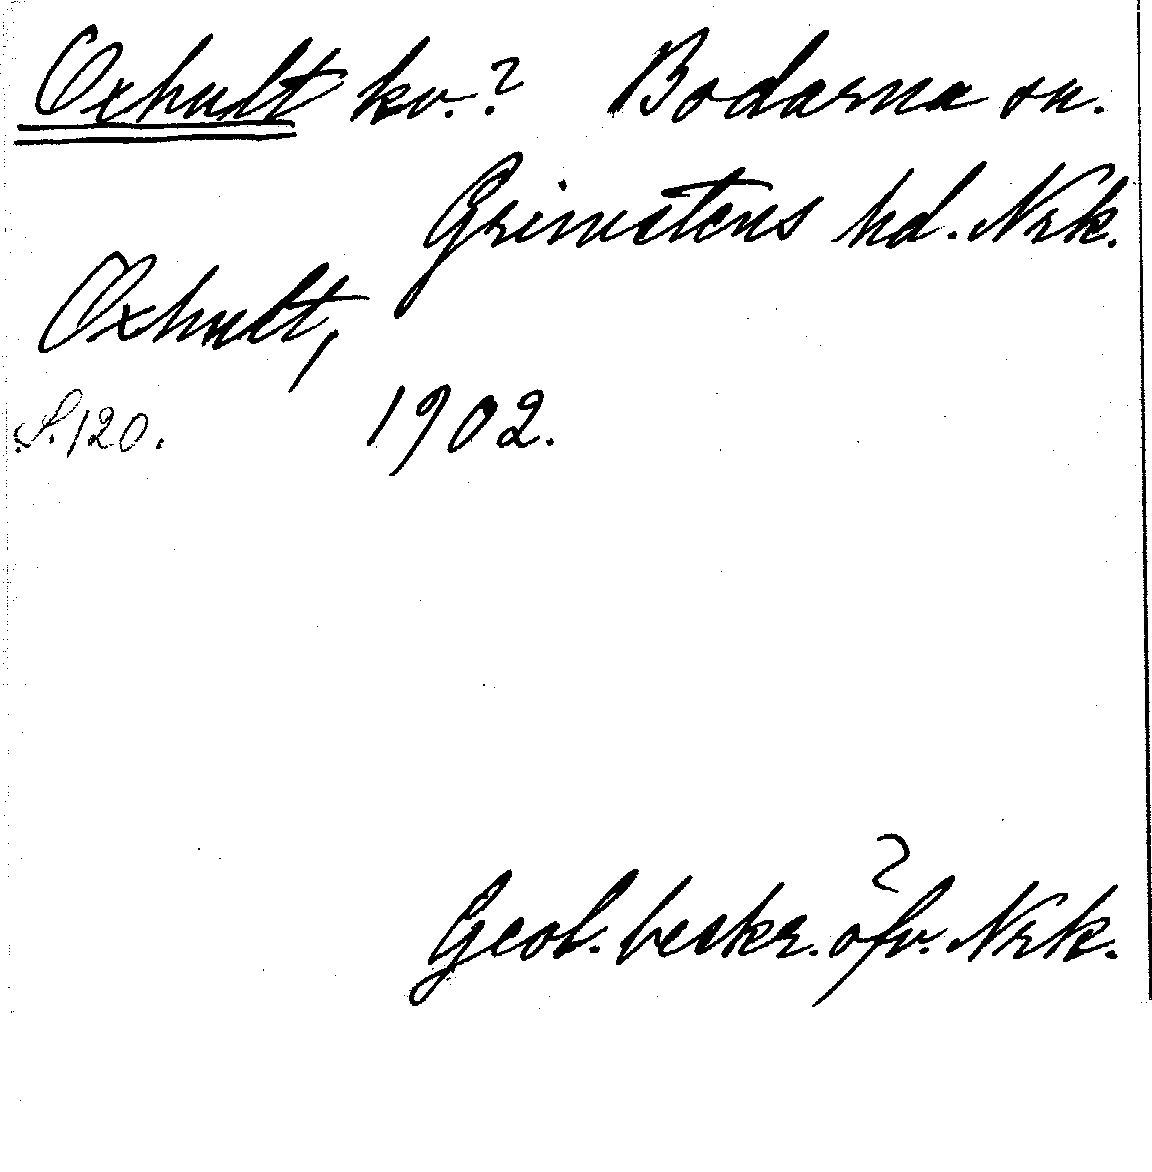 Oxhult kv.? Bodarna sn.
Grimstens hd. Nrk.
Oxhult,
S. 120. 1902.
Geol. beskr. öfv. Nrk.